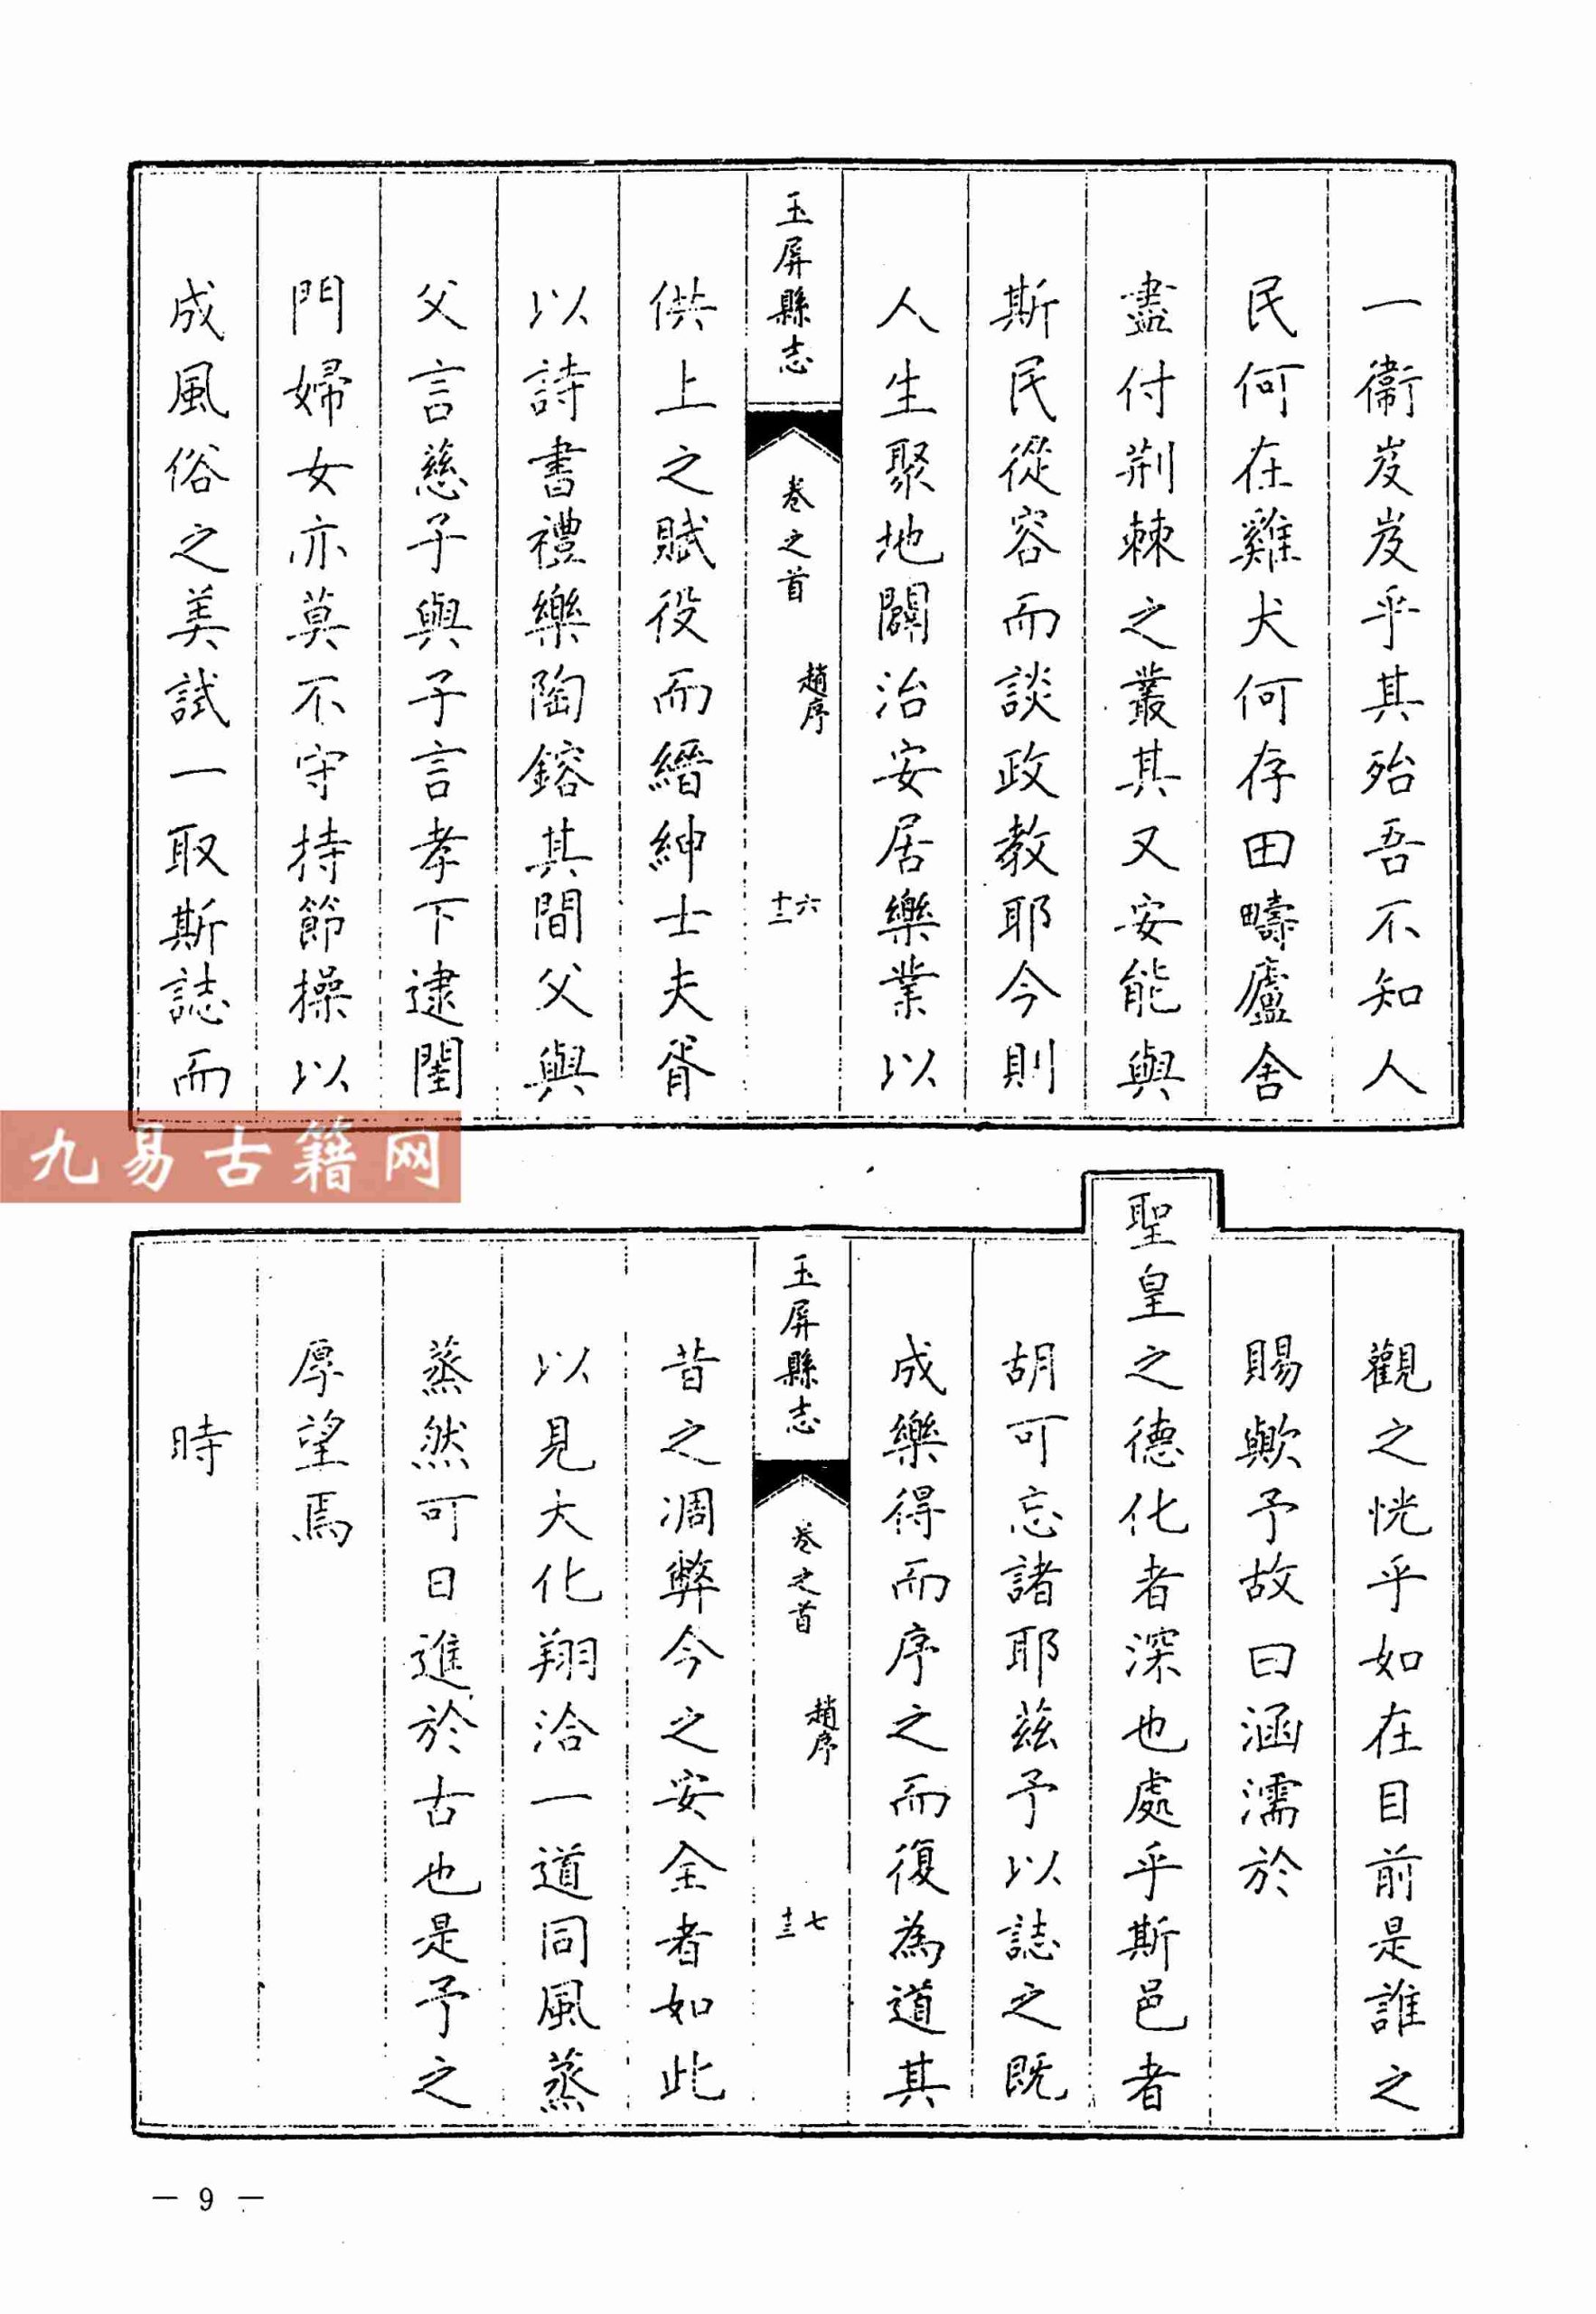 一衞岌岌乎其殆吾不知人
民何在雞犬何存田疇廬舍
盡付荆棘之叢其又安能與
斯民從容而談政教耶今則
人生聚地闢治安居樂業以
玉屏縣志 卷之首 趙序 六 十二
供上之賦役而縉紳士夫胥
以詩書禮樂陶鎔其間父與
父言慈子與子言孝下逮閨
門婦女亦莫不守持節操以
成風俗之美試一取斯誌而
九易古籍网
觀之恍乎如在目前是誰之
賜歟予故曰涵濡於
聖皇之德化者深也處乎斯邑者
胡可忘諸耶茲予以誌之既
成樂得而序之而復為道其
玉屏縣志 卷之首 趙序 七 十三
昔之凋弊今之安全者如此
以見大化翔洽一道同風蒸
蒸然可日進於古也是予之
厚望焉
時
— 9 —